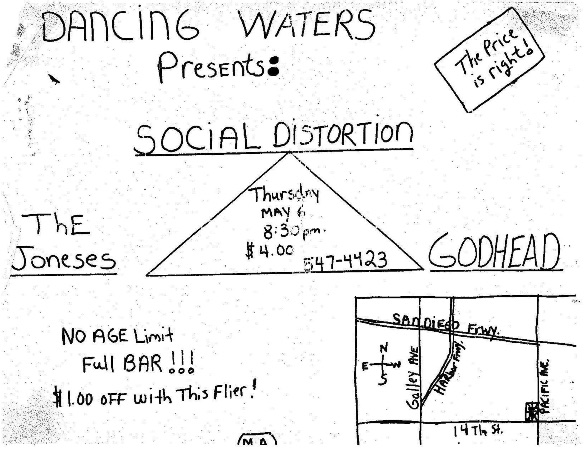 DANCING WATERS
Presents:
The Price
is right!
SOCIAL DISTORTION
Thursday
MAY 6
8:30pm.
$4.00
547-4423
ThE
Joneses
GODHEAD
NO AGE Limit
Full BAR !!!
$1.00 OFF with This Flier!
SAN DIEGO Frwy.
N
E W
S
Galley AVE
HARBOR Frwy.
PACIFIC AVE.
14Th St.
M.A.